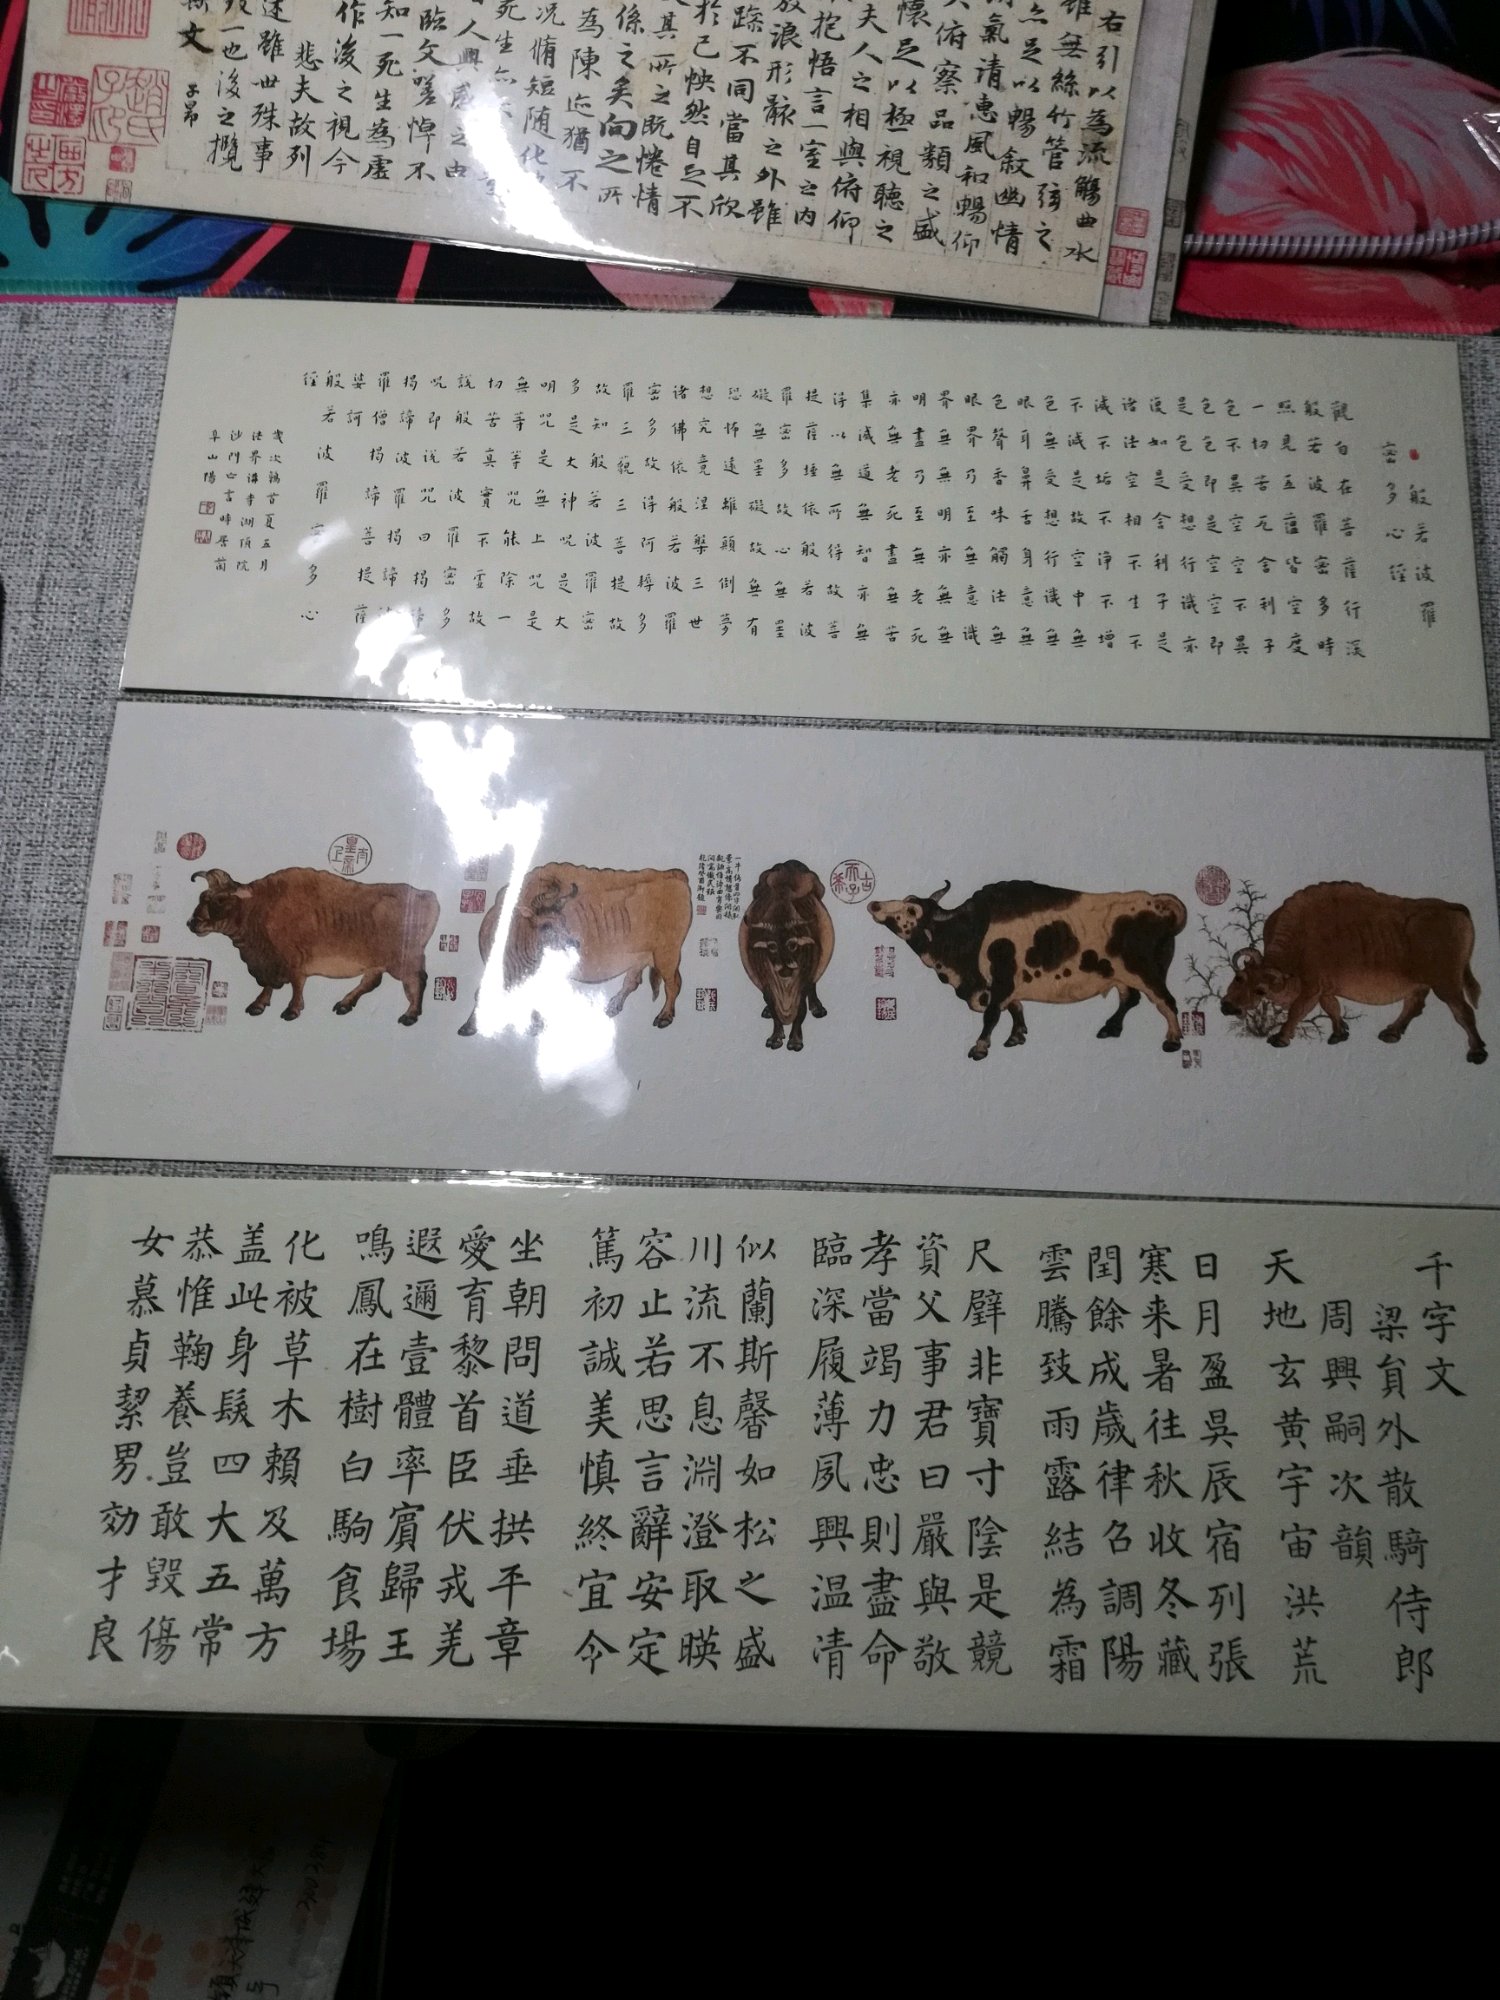 右引以為流觴曲水
雖無絲竹管弦之
亦足以暢敘幽情
氣清惠風和暢仰
俯察品類之盛
懷足以極視聽之
夫人之相與俯仰
抱悟言一室之內
放浪形骸之外雖
踩不同當其欣
於己怏然自足不
其所之既惓情
係之矣向之所
為陳迹猶不
況脩短随化
死生亦
人興感之由
臨文嗟悼不
知一死生為虛
作後之視今
悲夫故列
述雖世殊事
一也後之攬
斯文 子昂
般若波羅
蜜多心経
觀自在菩薩行深
般若波羅蜜多時
照見五蘊皆空度
一切苦厄舍利子
色不異空空不異
色色即是空空即
是色受想行識亦
復如是舍利子是
諸法空相不生不
滅不垢不淨不增
不減是故空中無
色無受想行識無
眼耳鼻舌身意無
色聲香味觸法無
眼界乃至無意識
界無無明亦無無
明盡乃至無老死
亦無老死盡無苦
集滅道無智亦無
得以無所得故菩
提薩埵依般若波
羅蜜多故心無罣
礙無罣礙故無有
恐怖遠離顛倒夢
想究竟涅槃三世
諸佛依般若波羅
蜜多故得阿耨多
羅三藐三菩提故
故知般若波羅蜜
多是大神咒是大
明咒是無上咒是
無等等咒能除一
切苦真實不虛故
說般若波羅蜜多
咒即說咒曰揭諦
揭諦波羅揭諦波
羅僧揭諦菩提薩
婆訶
般若波羅蜜多心
経
歲次鶉首夏五月
法界講寺湖頂院
沙門心言時居葡
阜山陽
乾隆癸酉御題
千字文
梁負外散騎侍郎
周興嗣次韻
天地玄黄宇宙洪荒
日月盈昃辰宿列張
寒来暑往秋收冬藏
閏餘成歲律召調陽
雲騰致雨露結為霜
尺璧非寶寸陰是競
資父事君曰嚴與敬
孝當竭力忠則盡命
臨深履薄夙興温凊
似蘭斯馨如松之盛
川流不息淵澄取暎
容止若思言辭安定
篤初誠美慎終宜令
坐朝問道垂拱平章
愛育黎首臣伏戎羌
遐邇壹體率賓歸王
鳴鳳在樹白駒食場
化被草木賴及萬方
盖此身髮四大五常
恭惟鞠養豈敢毀傷
女慕貞絜男効才良